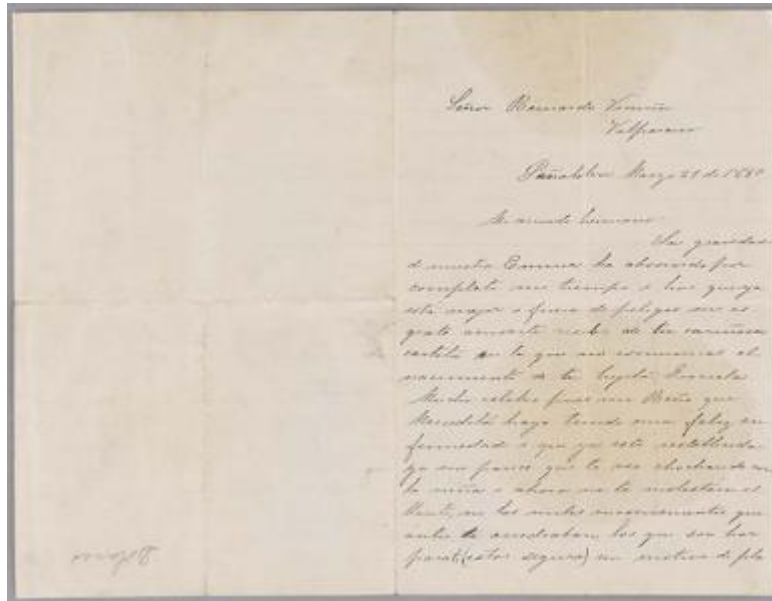 Señor Bernardo Vicuña
Valparaiso
Peñalolen Marzo 21 de 1880
Mi querido hermano
La gravedad
de nuestra Emma ha absorvido por
completo mi tiempo i hoi que ya
está mejor i fuera de peligro me es
grato recibo de tu cariñosa
cartita en la que me comunicas el
nacimiento de tu hijita
Mucho celebro pues mi que
haya tenido una feliz en
fermedad i que ya esté restablecida
ya me parece que te veo chocheando con
la niña i ahora no te molestan el
ni los miles inconvenientes que
antes te arredraban los que son hoi
para ti (estoi seguro) un motivo de pla